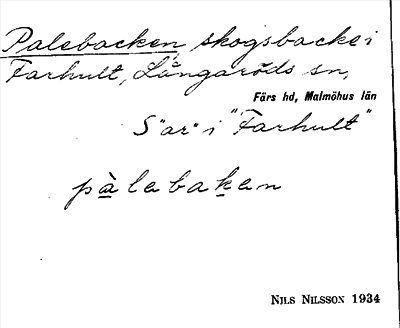 Palebacken, skogsbacke i
Farhult, Långaröds sn,
Färs hd, Malmöhus län
S"ar" i "Farhult"
pàlebaken
NILS NILSSON 1934